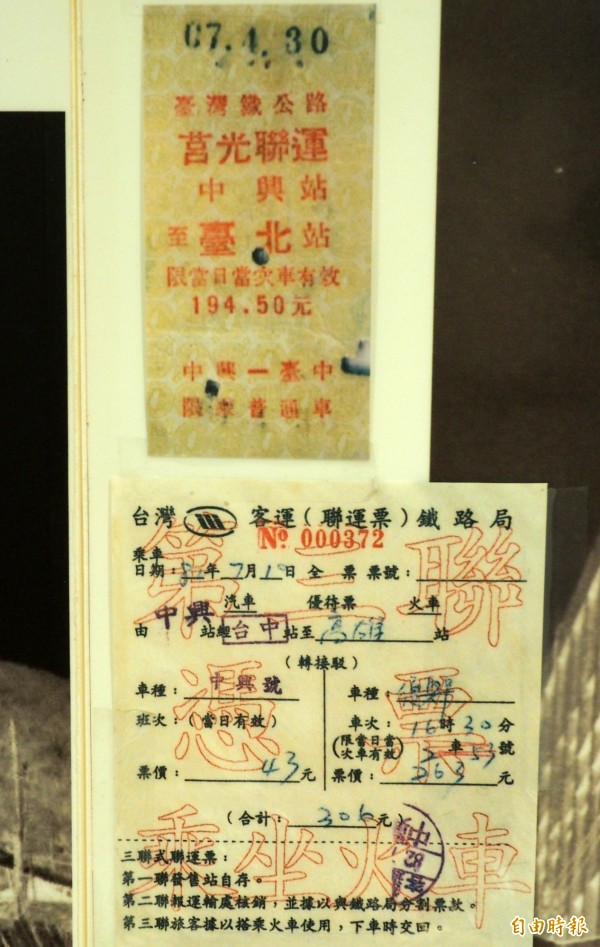 67.4.30
臺灣鐵公路
莒光聯運
中興站
至臺北站
限當日當次車有效
194.50元
中興—臺中
限乘普通車
台灣 客運(聯運票)鐵路局
№ 000372
第三聯
乘車
日期: 年7月1 日 全 票 票號:
汽車 優待票 火車
由中興站經台中站至高雄站
(轉接駁)
憑票
車種:中興號
班次:(當日有效)
票價:43元
車種:
車次:16時30分
(限當日當次車有效) 車53號
票價:263元
(合計:306元)
乘坐火車
三聯式聯運票:
第一聯發售站自存。
第二聯報運輸處核銷,並據以與鐵路局分割票款。
第三聯旅客據以搭乘火車使用,下車時交回。
自由時報